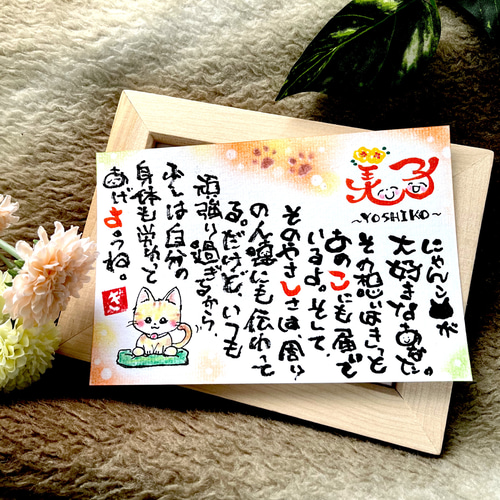 美子
~YOSHIKO~
にゃんこが
大好きなあなた。
その想いはきっと
あのこにも届いて
いるよ。そして、
そのやさしさは、周り
の人達にも伝わって
る。だけど、いつも
頑張り過ぎるから、
は自分の
身体も労わって
あげようね。
ぎ